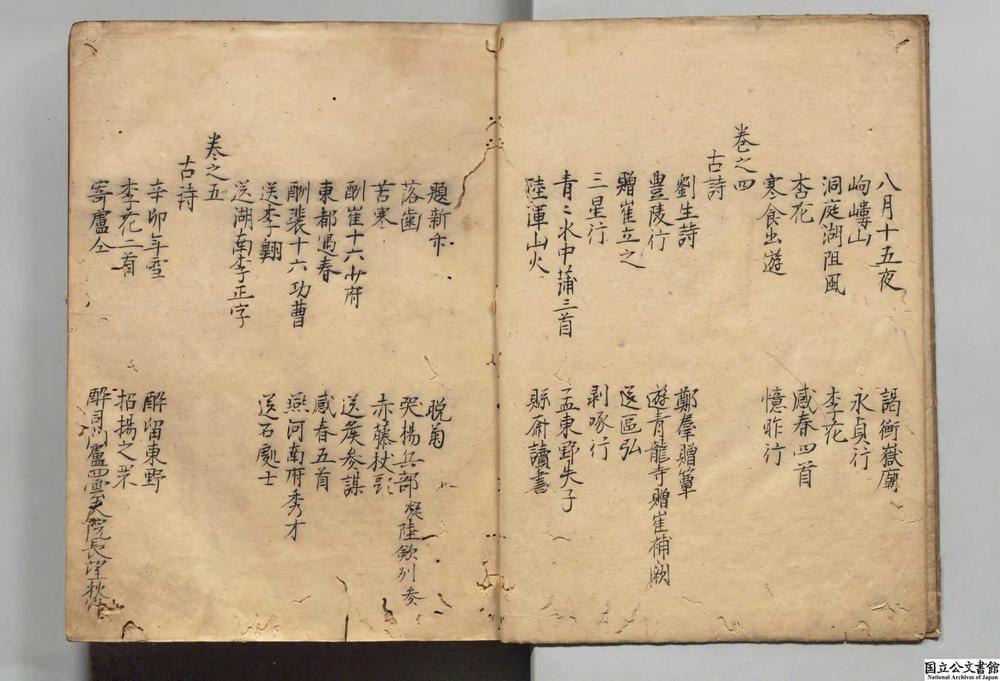 八月十五夜
謁衡嶽廟
岣嶁山
永貞行
洞庭湖阻風
李花
杏花
感春四首
寒食出遊
憶昨行
卷之四
古詩
劉生詩
鄭羣贈簟
豐陵行
遊青龍寺贈崔補闕
贈崔立之
送區弘
三星行
剥啄行
青〻水中蒲三首
孟東野失子
陸渾山火
縣齋讀書
題新
晚菊
落齒
哭楊兵部凝陸歙州參
苦寒
赤藤杖歌
酬崔十六少府
送侯參謀
東都遇春
感春五首
酬裴十六功曹
燕河南府秀才
送李翺
送石處士
送湖南李正字
卷之五
古詩
辛卯年雪
醉留東野
李花二首
招揚之罘
寄盧仝
酬司門盧四雲夫院長望秋作
国立公文書館
National Archives of Japan